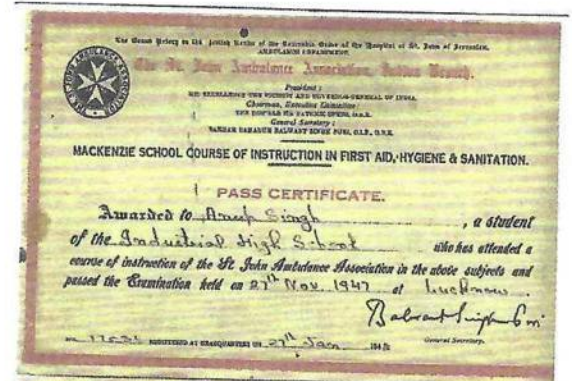 The Grand Priory in the British Realm of the Venerable Order of the Hospital of St. John of Jerusalem.
AMBULANCE DEPARTMENT.
The St. John Ambulance Association, Indian Branch.
President :
HIS EXCELLENCY THE VICEROY AND GOVERNOR-GENERAL OF INDIA.
Chairman, Executive Committee :
THE HON'BLE SIR PATRICK SPENS, O.B.E.
General Secretary :
SARDAR BAHADUR BALWANT SINGH PURI, C.I.E., O.B.E.
MACKENZIE SCHOOL COURSE OF INSTRUCTION IN FIRST AID, HYGIENE & SANITATION.
PASS CERTIFICATE.
Awarded to Anup Singh, a student
of the Industrial High School who has attended a
course of instruction of the St. John Ambulance Association in the above subjects and
passed the Examination held on 27th Nov. 1947 at Lucknow.
Balwant Singh Puri
REGISTERED AT HEADQUARTERS ON 27th Jan 194
General Secretary.